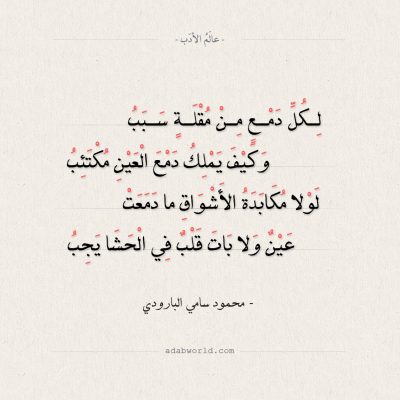 - عالَمُ الأدَب -
لِـكُلِّ دَمْـعٍ مِـنْ مُقْلَـةٍ سَـبَبُ
وَكَيْفَ يَمْلِكُ دَمْعَ الْعَيْنِ مُكْتَئِبُ
لَوْلا مُكَابَدَةُ الأَشْوَاقِ ما دَمَعَتْ
عَيْنٌ وَلا بَاتَ قَلْبٌ فِي الْحَشَا يَجِبُ
- محمود سامي البارودي
adabworld.com